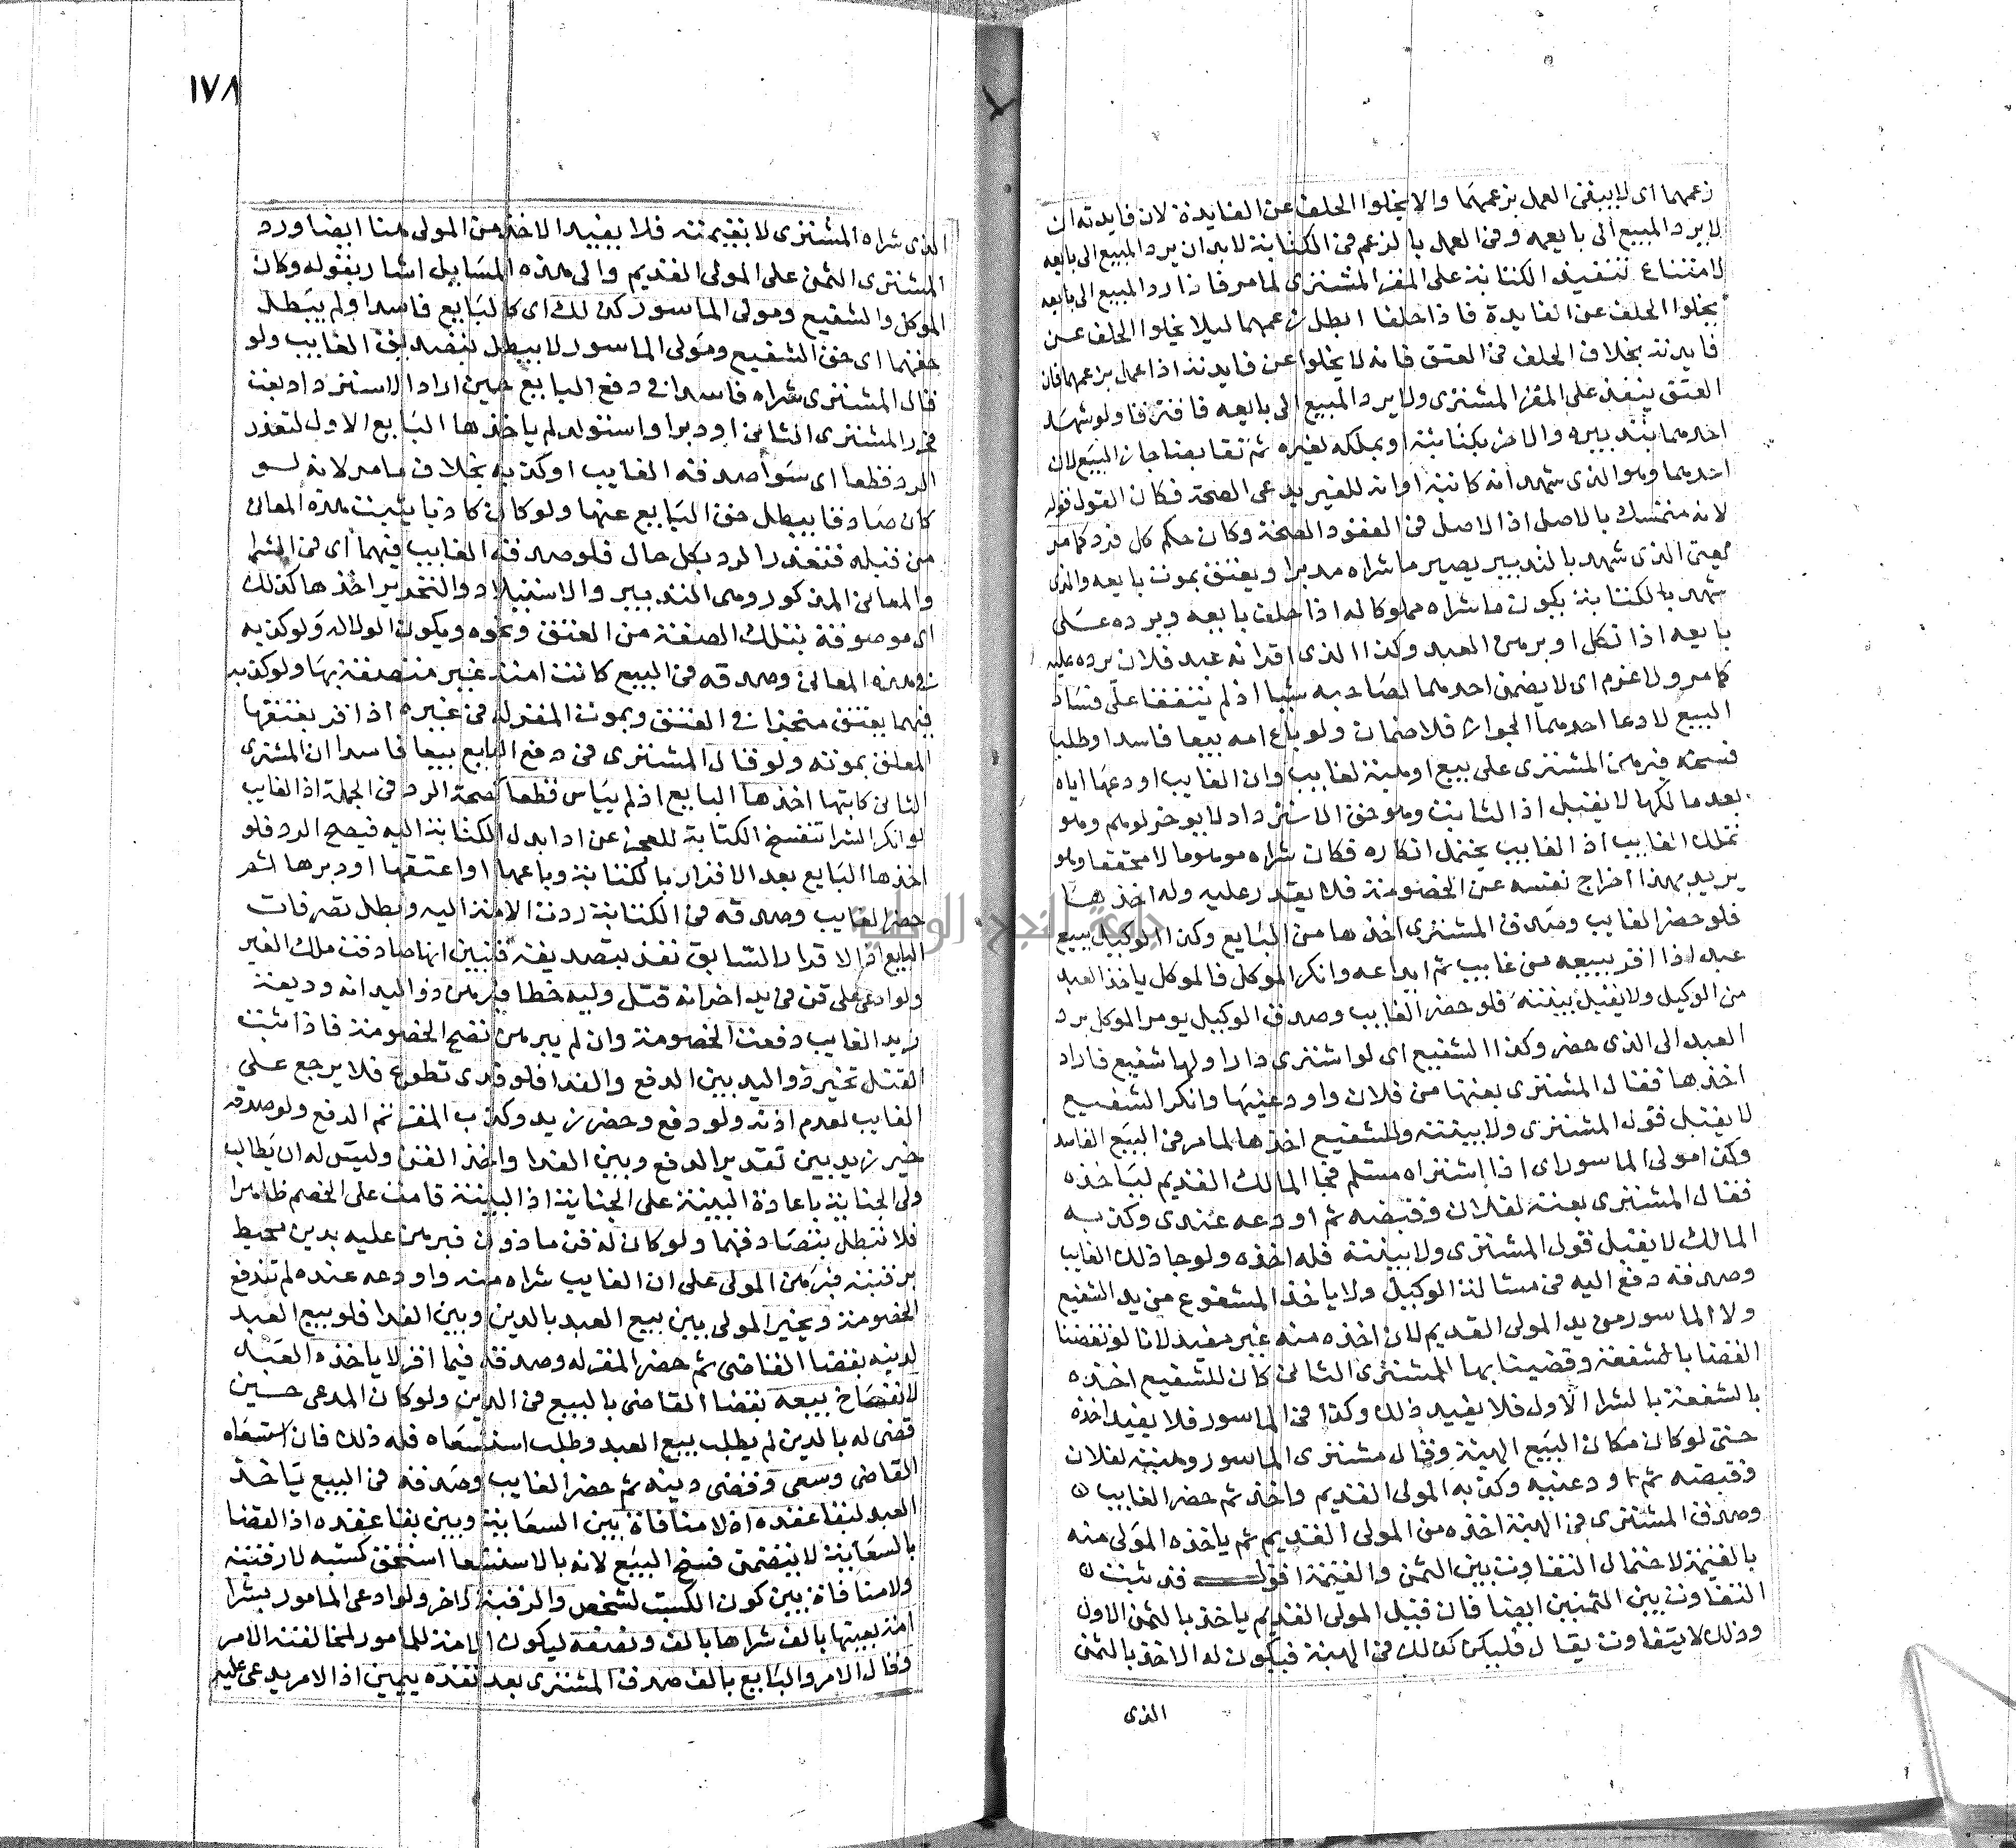 زعمهما اى لا يبقى العمل بزعمهما والا يخلوا الحلف عن الفايدة لان فايدته ان
لا يرد المبيع الى بايعه وفى العمل بالزعم فى الكتابة لا بد ان يرد المبيع الى بايعه
لامتناع تنفيذ الكتابة على المقر المشترى لما مر فاذا رد المبيع الى بايعه
يخلوا الحلف عن الفايدة فاذا حلفا ابطل زعمهما ليلا يخلوا الحلف عن
فايدته بخلاف الحلف فى العتق فانه لا يخلوا عن فايدته اذا عمل بزعمهما فان
العتق ينفذ على المقر المشترى ولا يرد المبيع الى بايعه فافترقا ولو شهد
احدهما بتدبيره والاخر بكتابته او بملكه لغيره ثم تقابضا جاز البيع لان
احدهما وهو الذى شهد انه كاتبه او انه للغير يدعى الصحة فكان القول قوله
لانه متمسك بالاصل اذ الاصل فى العقود الصحة وكان حكم كل فرد كما مر
يعنى الذى شهد بالتدبير يصير ما شراه مدبرا ويعتق بموت بايعه والذى
شهد بالكتابة يكون ما شراه مملوكا له اذا حلف بايعه ويرده على
بايعه اذا نكل او برهن العبد وكذا الذى اقر انه عبد فلان يرده عليه
كما مر ولا غرم اى لا يضمن احدهما لصاحبه شيا اذ لم يتفقا على فساد
البيع لادعا احدهما الجواز فلا ضمان ولو باع امه بيعا فاسدا وطلب
فسخه فبرهن المشترى على بيع او هبة لغايب وان الغايب اودعها اياه
بعد ما لكها لا يقبل اذ الثابت وهو حق الاسترداد لا يوخر لوهم وهو
تملك الغايب اذ الغايب يحتمل انكاره فكان شراه موهوما لا محققا وهو
يريد بهذا اخراج نفسه عن الخصومة فلا يقدر عليه وله اخذها
فلو حضر الغايب وصدق المشترى اخذها من البايع وكذا الوكيل ببيع
عبد اذا اقر ببيعه من غايب ثم ايداعه وانكر الموكل فالموكل ياخذ العبد
من الوكيل ولا يقبل بينته فلو حضر الغايب وصدق الوكيل يومر الموكل برد
العبد الى الذى حضر وكذا الشفيع اى لو اشترى دارا ولها شفيع فاراد
اخذها فقال المشترى بعتها من فلان واودعنيها وانكر الشفيع
لا يقبل قول المشترى ولا بينته وللشفيع اخذها لما مر فى البيع الفاسد
وكذا مولى الماسور اى اذا اشتراه مسلم فجا المالك القديم لياخذه
فقال المشترى بعته لفلان وقبضه ثم اودعه عندى وكذبه
المالك لا يقبل قول المشترى ولا بينته فله اخذه ولو جا ذلك الغايب
وصدقه دفع اليه فى مسالة الوكيل ولا ياخذ المشفوع من يد الشفيع
ولا الماسور من يد المولى القديم لان اخذه منه غير مفيد لانا لو نقضنا
القضا بالشفعة وقضينا بها للمشترى الثانى كان للشفيع اخذه
بالشفعة بالشرا الاول فلا يفيد ذلك وكذا فى الماسور فلا يفيد اخذه
حتى لو كان مكان البيع الهبة وقال مشترى الماسور وهبته لفلان
وقبضه ثم اودعنيه وكذبه المولى القديم واخذ ثم حضر الغايب
وصدق المشترى فى الهبة اخذه من المولى القديم ثم ياخذه المولى منه
بالقيمة لاحتمال التفاوت بين الثمن والقيمة اقول قد ثبت
التفاوت بين الثمنين ايضا فان قبل المولى القديم ياخذ بالثمن الاول
وذلك لا يتفاوت يقال فليكن كذلك فى الهبة فيكون له الاخذ بالثمن
الذى
١٧٨
الذى شراه المشترى لا بقيمته فلا يفيد الاخذ من المولى هنا ايضا ورد
المشترى الثمن على المولى القديم والى هذه المسايل اشار بقوله وكان
الموكل والشفيع ومولى الماسور كذلك اى كالبايع فاسدا ولم يبطل
حقهما اى حق الشفيع ومولى الماسور لا يبطل بتصديق الغايب ولو
قال المشترى شراه فاسدا فى دفع البايع حين اراد الاسترداد بعت
فحرر المشترى الثانى او دبرا واستولد لم ياخذها البايع الاول لتعذر
الرد قطعا اى سوا صدقه الغايب او كذبه بخلاف ما مر لانه لو
كان صادقا يبطل حق البايع عنها ولو كان كاذبا يثبت هذه المعانى
من قبله فتعذر الرد بكل حال فلو صدقه الغايب فيهما اى فى الشرا
والمعانى المذكور وهى التدبير والاستيلاد والتحرير اخذها كذلك
اى موصوفة بتلك الصفة من العتق ونحوه ويكون الولا له ولو كذبه
فى هذه المعانى وصدقه فى البيع كانت امة غير متصفة بها ولو كذبه
فيهما يعتق منجزا فى العتق وبموت المقر له فى غيره اذا اقر بعتقها
المعلق بموته ولو قال المشترى فى دفع البايع بيعا فاسدا ان المشترى
الثانى كاتبها اخذها البايع اذ لم يياس قطعا لصحة الرد فى الجملة اذ الغايب
لو انكر الشرا تنفسخ الكتابة للعجز عن ادا بدل الكتابة اليه فيصح الرد فلو
اخذها البايع بعد الاقرار بالكتابة وباعها او اعتقها او دبرها ثم
حضر الغايب وصدقه فى الكتابة ردت الامة اليه وبطل تصرفات
البايع اذ الاقرار السابق نفذ بتصديقه فتبين انها صادفت ملك الغير
ولو ادعى على قن فى يد اخر انه قتل وليه خطا فبرهن ذو اليد انه وديعة
زيد الغايب دفعت الخصومة وان لم يبرهن تصح الخصومة فاذا ثبت
القتل تخير ذو اليد بين الدفع والفدا فلو فدى تطوع فلا يرجع على
الغايب لعدم اذنه ولو دفع وحضر زيد وكذب المقر تم الدفع ولو صدقه
خير زيد بين تقدير الدفع وبين الفدا واخذ القن وليس له ان يطالب
ولى الجناية باعادة البينة على الجناية اذ البينة قامت على الخصم ظاهرا
فلا تبطل بتصادقهما ولو كان له قن ماذون فبرهن عليه بدين محيط
برقبته فبرهن المولى على ان الغايب شراه منه واودعه عنده لم تندفع
الخصومة ويخير المولى بين بيع العبد بالدين وبين الفدا فلو بيع العبد
لدينه بقضا القاضى ثم حضر المقر له وصدقه فيما اقر لا ياخذه العبد
لانفساخ بيعه بقضا القاضى بالبيع فى الدين ولو كان المدعى حين
قضى له بالدين لم يطلب بيع العبد وطلب استسعاه فله ذلك فان استسعاه
القاضى وسعى وقضى دينه ثم حضر الغايب وصدقه فى البيع ياخذ
العبد لبقا عقده اذ لا منافاة بين السعاية وبين بقا عقده اذ القضا
بالسعاية لا يتضمن فسخ البيع لانه بالاستسعا استحق كسبه لا رقبته
ولا منافاة بين كون الكسب لشخص والرقبة لاخر ولو ادعى المامور بشرا
امة بعينها بالف شراها بالف ونصفه ليكون الامة للمامور لمخالفته الامر
وقال الامر والبايع بالف صدق المشترى بعد نقده بيمين اذ الامر يدعى عليه